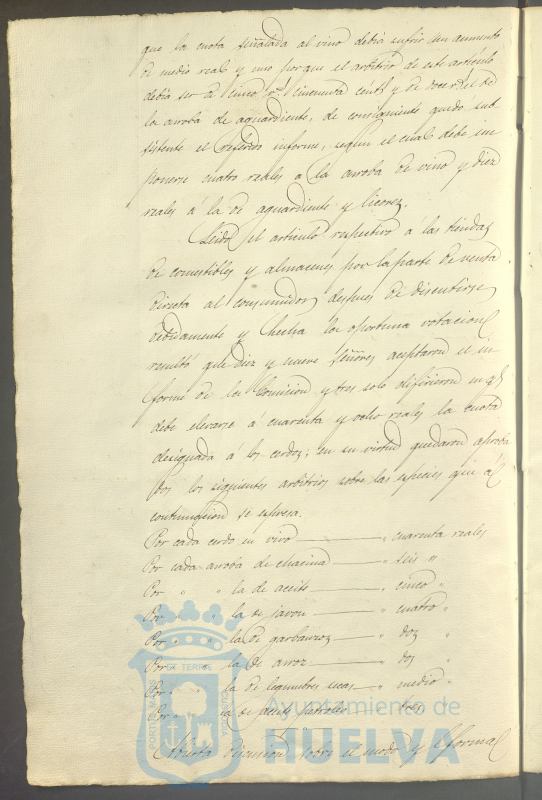 que la cuota señalada al vino debia sufrir un aumento
de medio real y uno porque el arbitrio de este articulo
debia ser de cinco rs cincuenta cents y de doce el de
la arroba de aguardiente, de consiguiente quedó sub
sistente el referido informe, segun el cual debe im
ponerse cuatro reales á la arroba de vino y diez
reales á la de aguardiente y licores.
Leido el articulo respectivo á las tiendas
de comestibles y almacenes por la parte de venta
directa al consumidor, despues de discutirse
debidamente y hecha la oportuna votacion
resultó que diez y nueve Señores aceptaron el in
forme de la Comision y tres solo difirieron en q
debe elevarse á cuarenta y ocho reales la cuota
designada á los cerdos; en su virtud quedaron aproba
dos los siguientes arbitrios sobre las especies que á
continuacion se espresa.
Por cada cerdo en vivo " cuarenta reales
Por cada arroba de chacina " seis "
Por " " la de aceite " cinco "
Por " " la de javon " cuatro "
Por " " la de garbanzos " dos "
Por " la de arroz " dos "
Por " la de legumbres secas " medio "
Por " la de aceite petroleo " tres
Abierta discusion sobre el modo y forma
PORTUS MARIS ET TERRE CUSTODIA
Ayuntamiento de
HUELVA